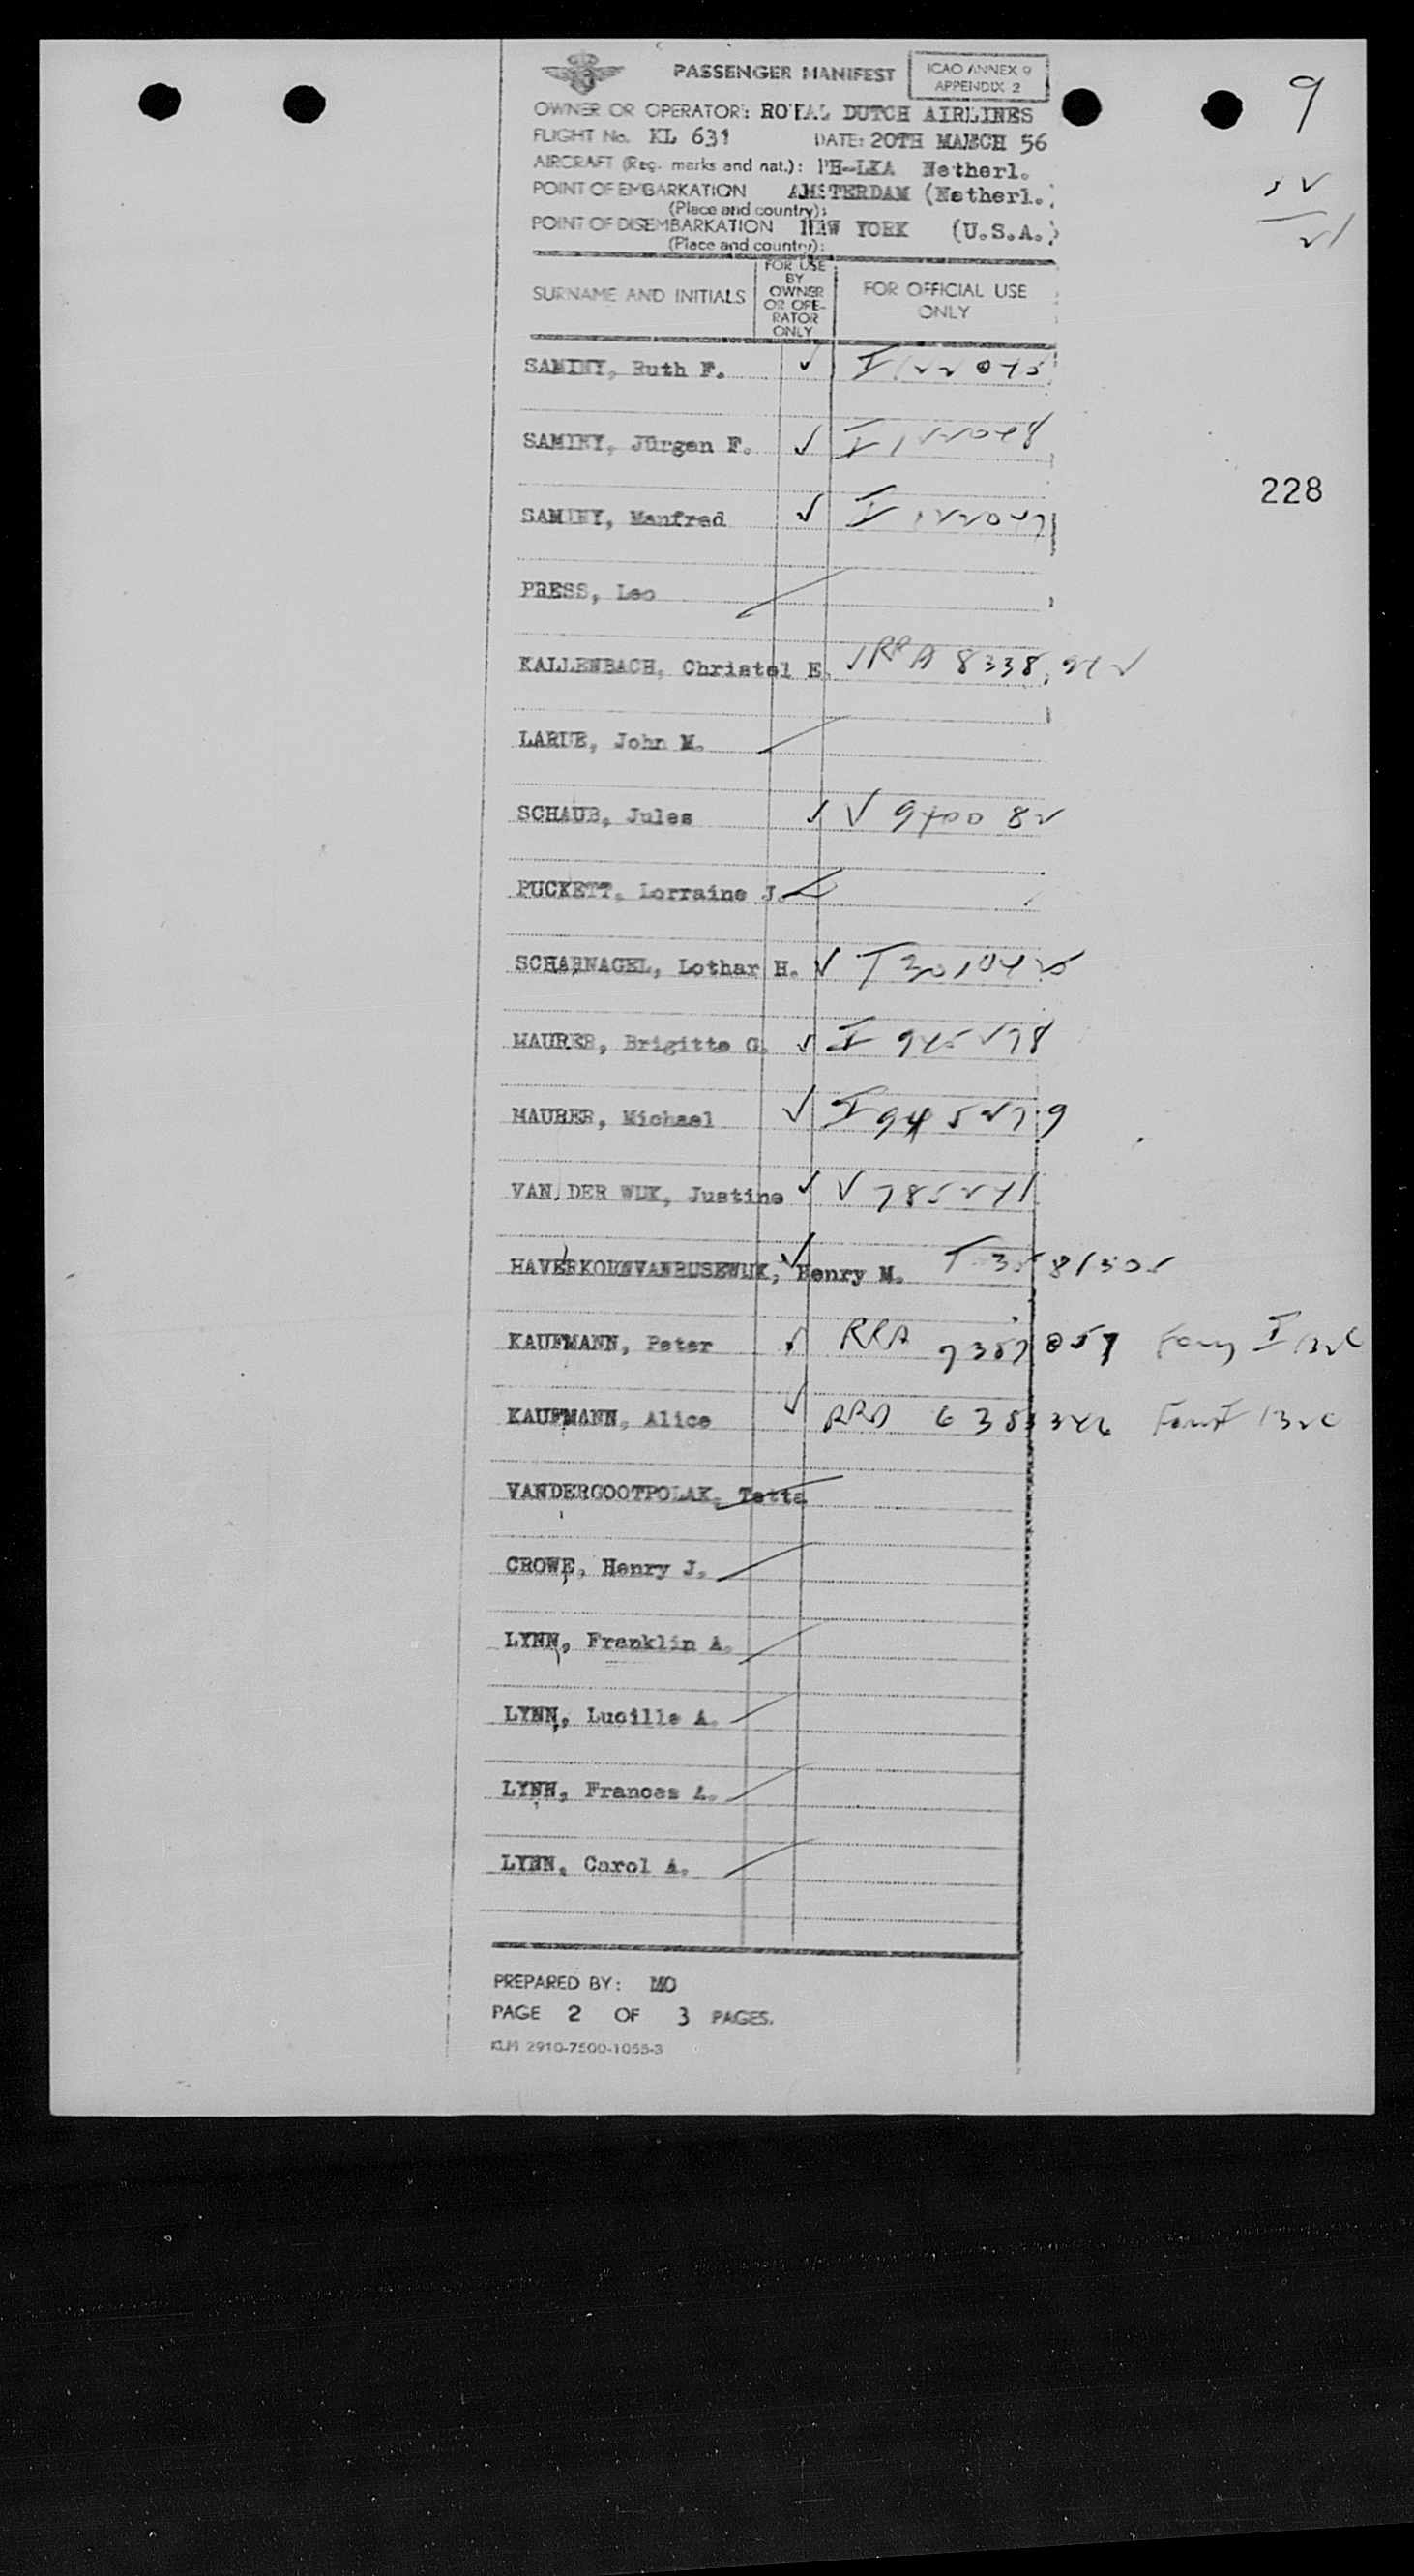 PASSENGER MANIFEST
ICAO ANNEX 9
APPENDIX 2
9
OWNER OR OPERATOR: ROYAL DUTCH AIRLINES
FLIGHT No. KL 631 DATE: 20TH MARCH 56
AIRCRAFT (Reg. marks and nat.): PH-LKA Netherl.
POINT OF EMBARKATION AMSTERDAM (Netherl.)
(Place and country):
POINT OF DISEMBARKATION NEW YORK (U.S.A.)
(Place and country):
SURNAME AND INITIALS
FOR USE
BY
OWNER
OR OPE-
RATOR
ONLY
FOR OFFICIAL USE
ONLY
SAMINY, Ruth F. I 122045
SAMINY, Jürgen F. I 122048
228
SAMINY, Manfred I 122047
PRESS, Leo
KALLENBACH, Christel E. RRA 8338
LARUE, John M.
SCHAUB, Jules V 940082
PUCKETT, Lorraine J.
SCHARNAGEL, Lothar H. T
MAURER, Brigitte G. I 945278
MAURER, Michael I 945279
VAN DER WIJK, Justine V 785241
HAVERKORNVANRIJSEWIJK, Henry M. T
KAUFMANN, Peter RRA
KAUFMANN, Alice RRA
VANDERGOOTPOLAK, Tetta
CROWE, Henry J.
LYNN, Franklin A.
LYNN, Lucille A.
LYNN, Frances A.
LYNN, Carol A.
PREPARED BY: MO
PAGE 2 OF 3 PAGES.
KLM 2910-7500-1055-3